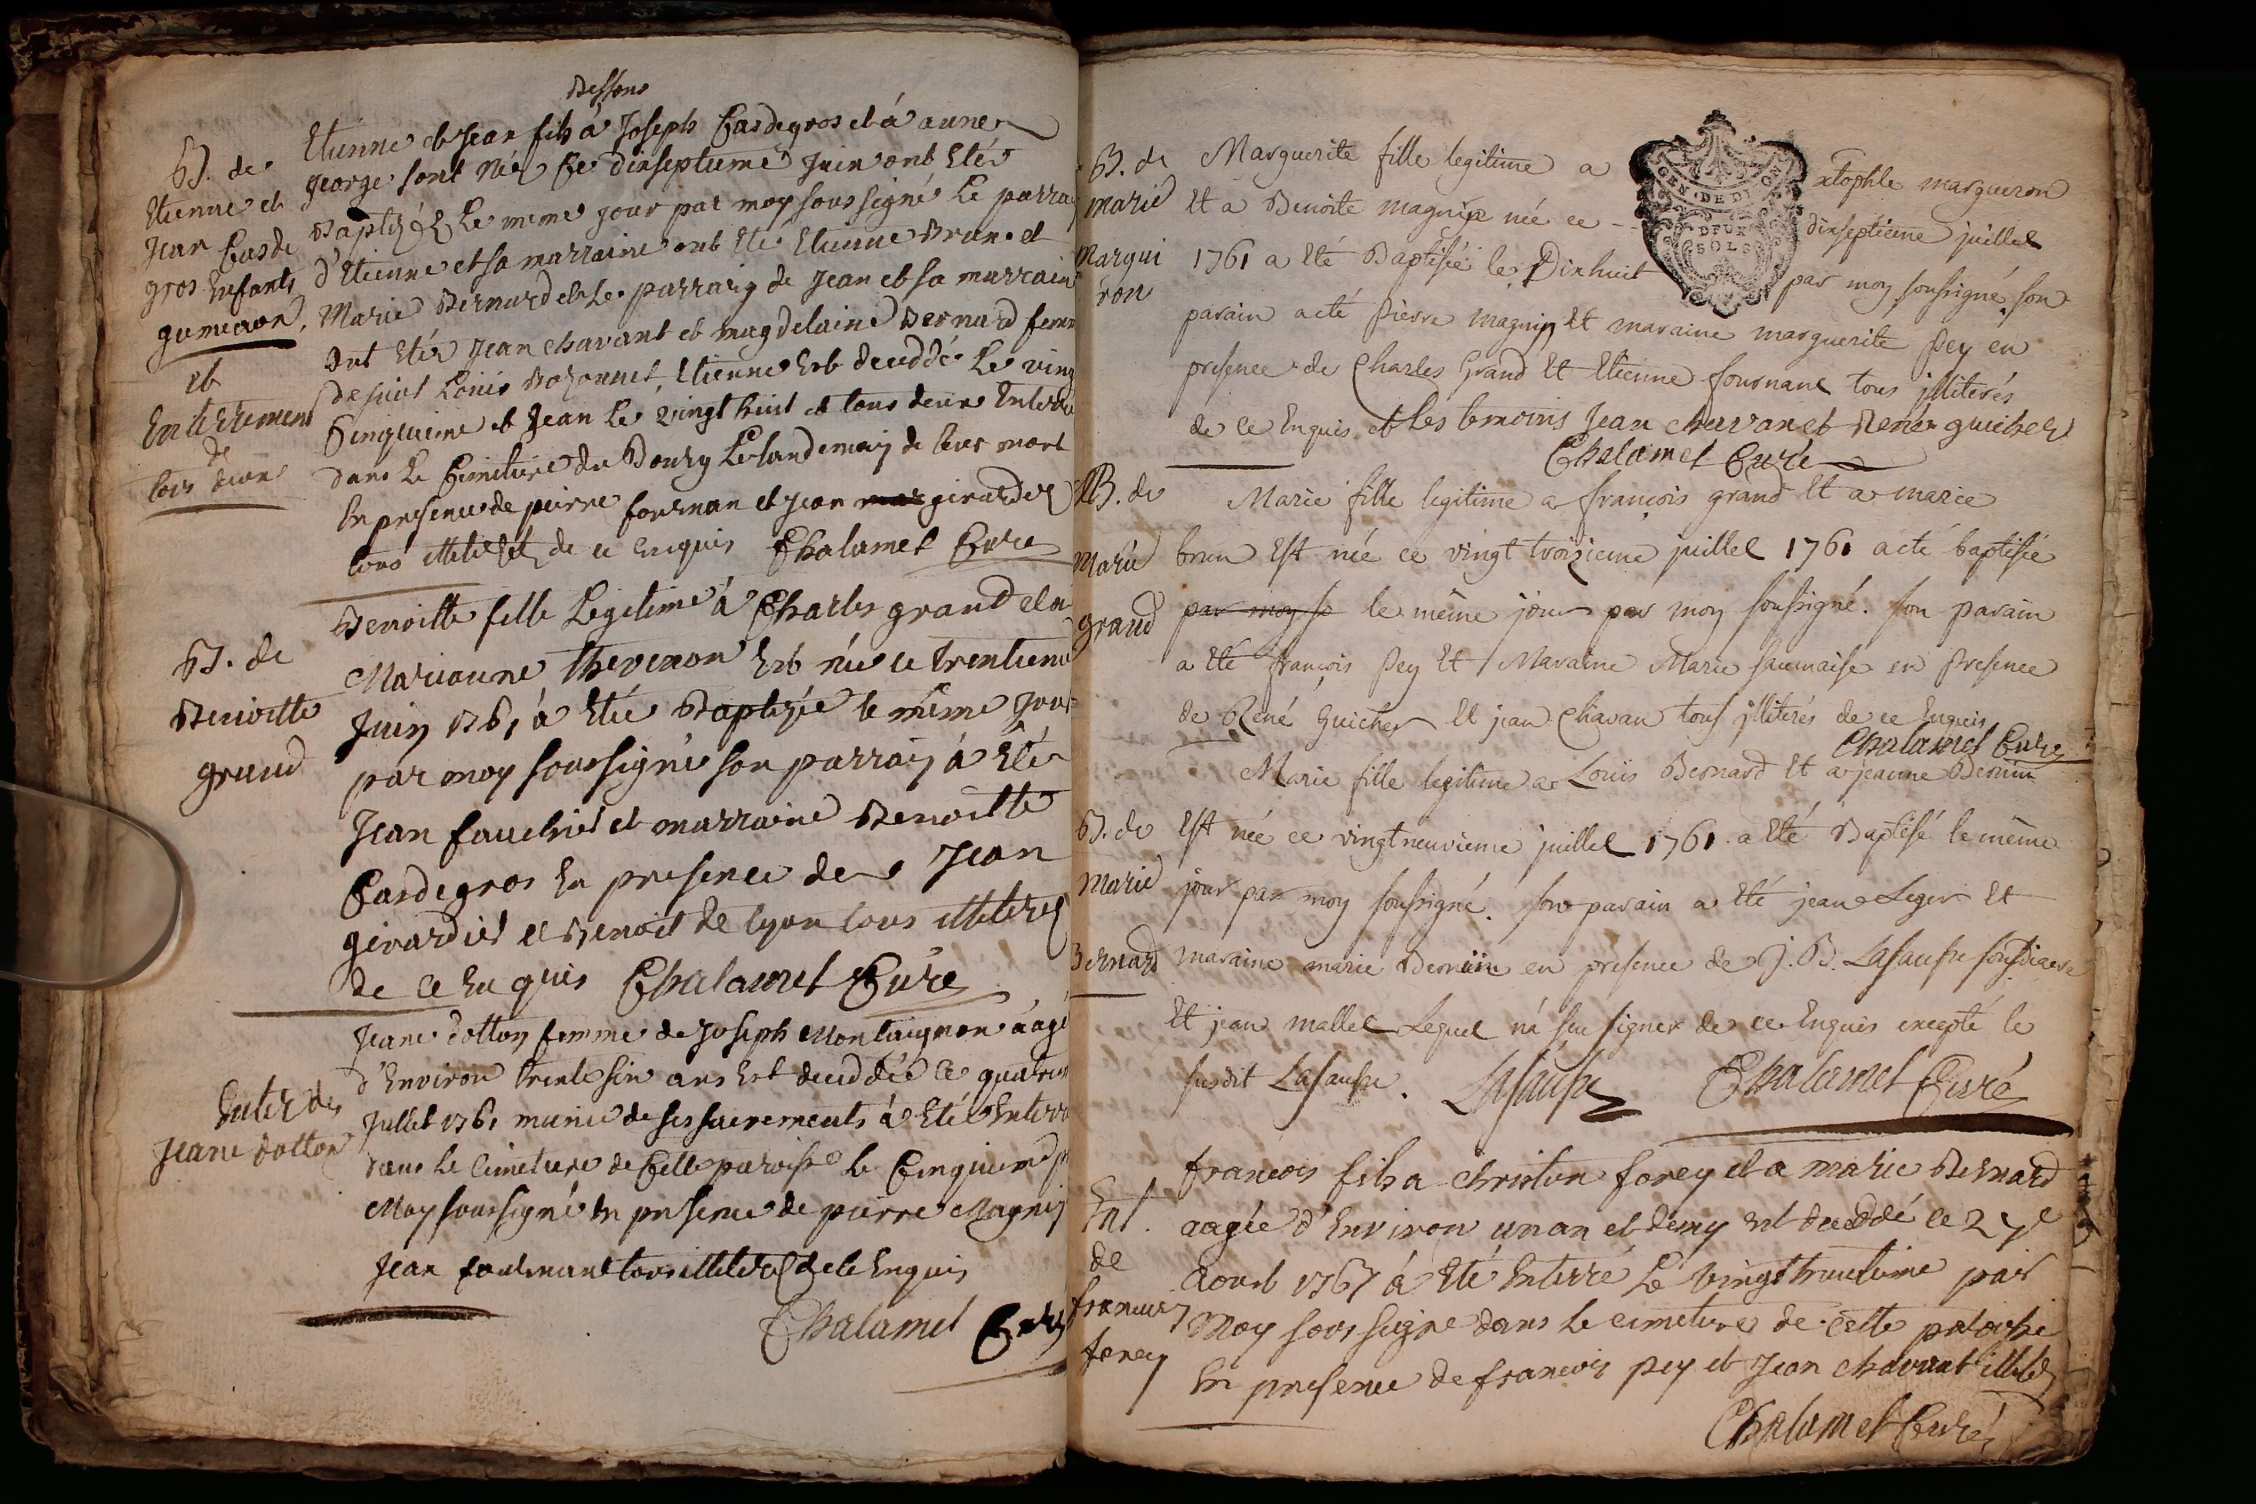 Bessons
B. de
Etienne et
Jean Casde
gros Enfants
gumeaux,
et
Enterrement
de
tous deux
Etienne et Jean fils à Joseph Casdegros et à anne
george sont Née Ce dixseptieme Juin ont Etés
Baptizés Le meme jour par moy sous signé Le parra
d'Etienne et sa marraine ont Eté Etienne Brun et
Marie Bernard et Le parrain de Jean et sa marraine
Ont Etés Jean chavant et magdelaine Bernard femm
de Louis Etienne Est deceddé Le ving
Cinquieme et Jean Le vingt huit et tous deux Enterré
dans Le Cimetiere du Bourg Le landemain de leur mort
En presence de pierre fournan et Jean girardes
tous illiterés de ce Enquis Chalamel Curé
B. de
Benoitte
grand
Benoitte fille Legitime à Charles grand et a
Marianne thevenon Est née ce trentieme
Juin 1761 à Etée Baptizée le même Jour
par moy soussigné son parrain à Eté
Jean fauchet et marraine Benoitte
Casdegros En presence de Jean
girardet et Benoit de lyon tous illiteres
de ce En quis Chalamel Curé
Enter de
Jeane dotton
Jeane dotton femme de Joseph Montaignon áagé
d'Environ trente six ans Est deceddée ce quatrie
Juillet 1761 munie de ses sacrements à Eté Enterr
dans Le Cimetiere de Cette paroisse le Cinquieme p
Moy soussigné En presence de pierre Magnin
Jean foulnant tous illiteres de ce Enquis
Chalamel Curé
B. de
marie
Margui
ron
GEN. DE DIJON
DEUX
SOLS
Marguerite fille legitime a xtophle margueron
Et a Benoite magnin née ce dixseptieme juillet
1761 a Eté Baptisée le Dixhuit par moy soussigné, son
parain a eté Pierre magnin Et maraine marguerite Pey en
presence de Charles Grand Et Etienne fournant tous jlliterés
de ce Enquis et Les temoins Jean chavan et René guicher
Chalamel Curé
B. de
Marie
grand
Marie fille legitime a françois grand Et a marie
brun Est née ce vingt troizieme juillet 1761 a eté baptisée
par moy so le même jour par moy soussigné. son parain
a Eté françois Pey Et Maraine Marie saumaise en Presence
de René Guicher Et jean Chavan tous jlliterés de ce Enquis
Chalamel Curé
B. de
Marie
Bernard
Marie fille legitime a Louis Bernard Et a jeanne Bernin
Est née ce vingtneuvieme juillet 1761 a Eté Baptisé le même
jour par moy soussigné. son parain a Eté jean Leger Et
maraine marie Bernin en presence de J. B. Lasausse sousdiacre
Et jean mallet Lequel n'a sçu signer de ce Enquis excepté le
susdit Lasausse. Lasausse Chalamel Curé
Ent.
de
francois
forey
francois fils a christin forey et a marie Bernard
aagée d'Environ un an et demy Est deceddé ce 27e
aoust 1761 à Eté Enterré Le vingt huitieme par
Moy sous signé dans le cimetiere de cette paroisse
En presence de francois pey et Jean chavant illiterés
Chalamel Curé